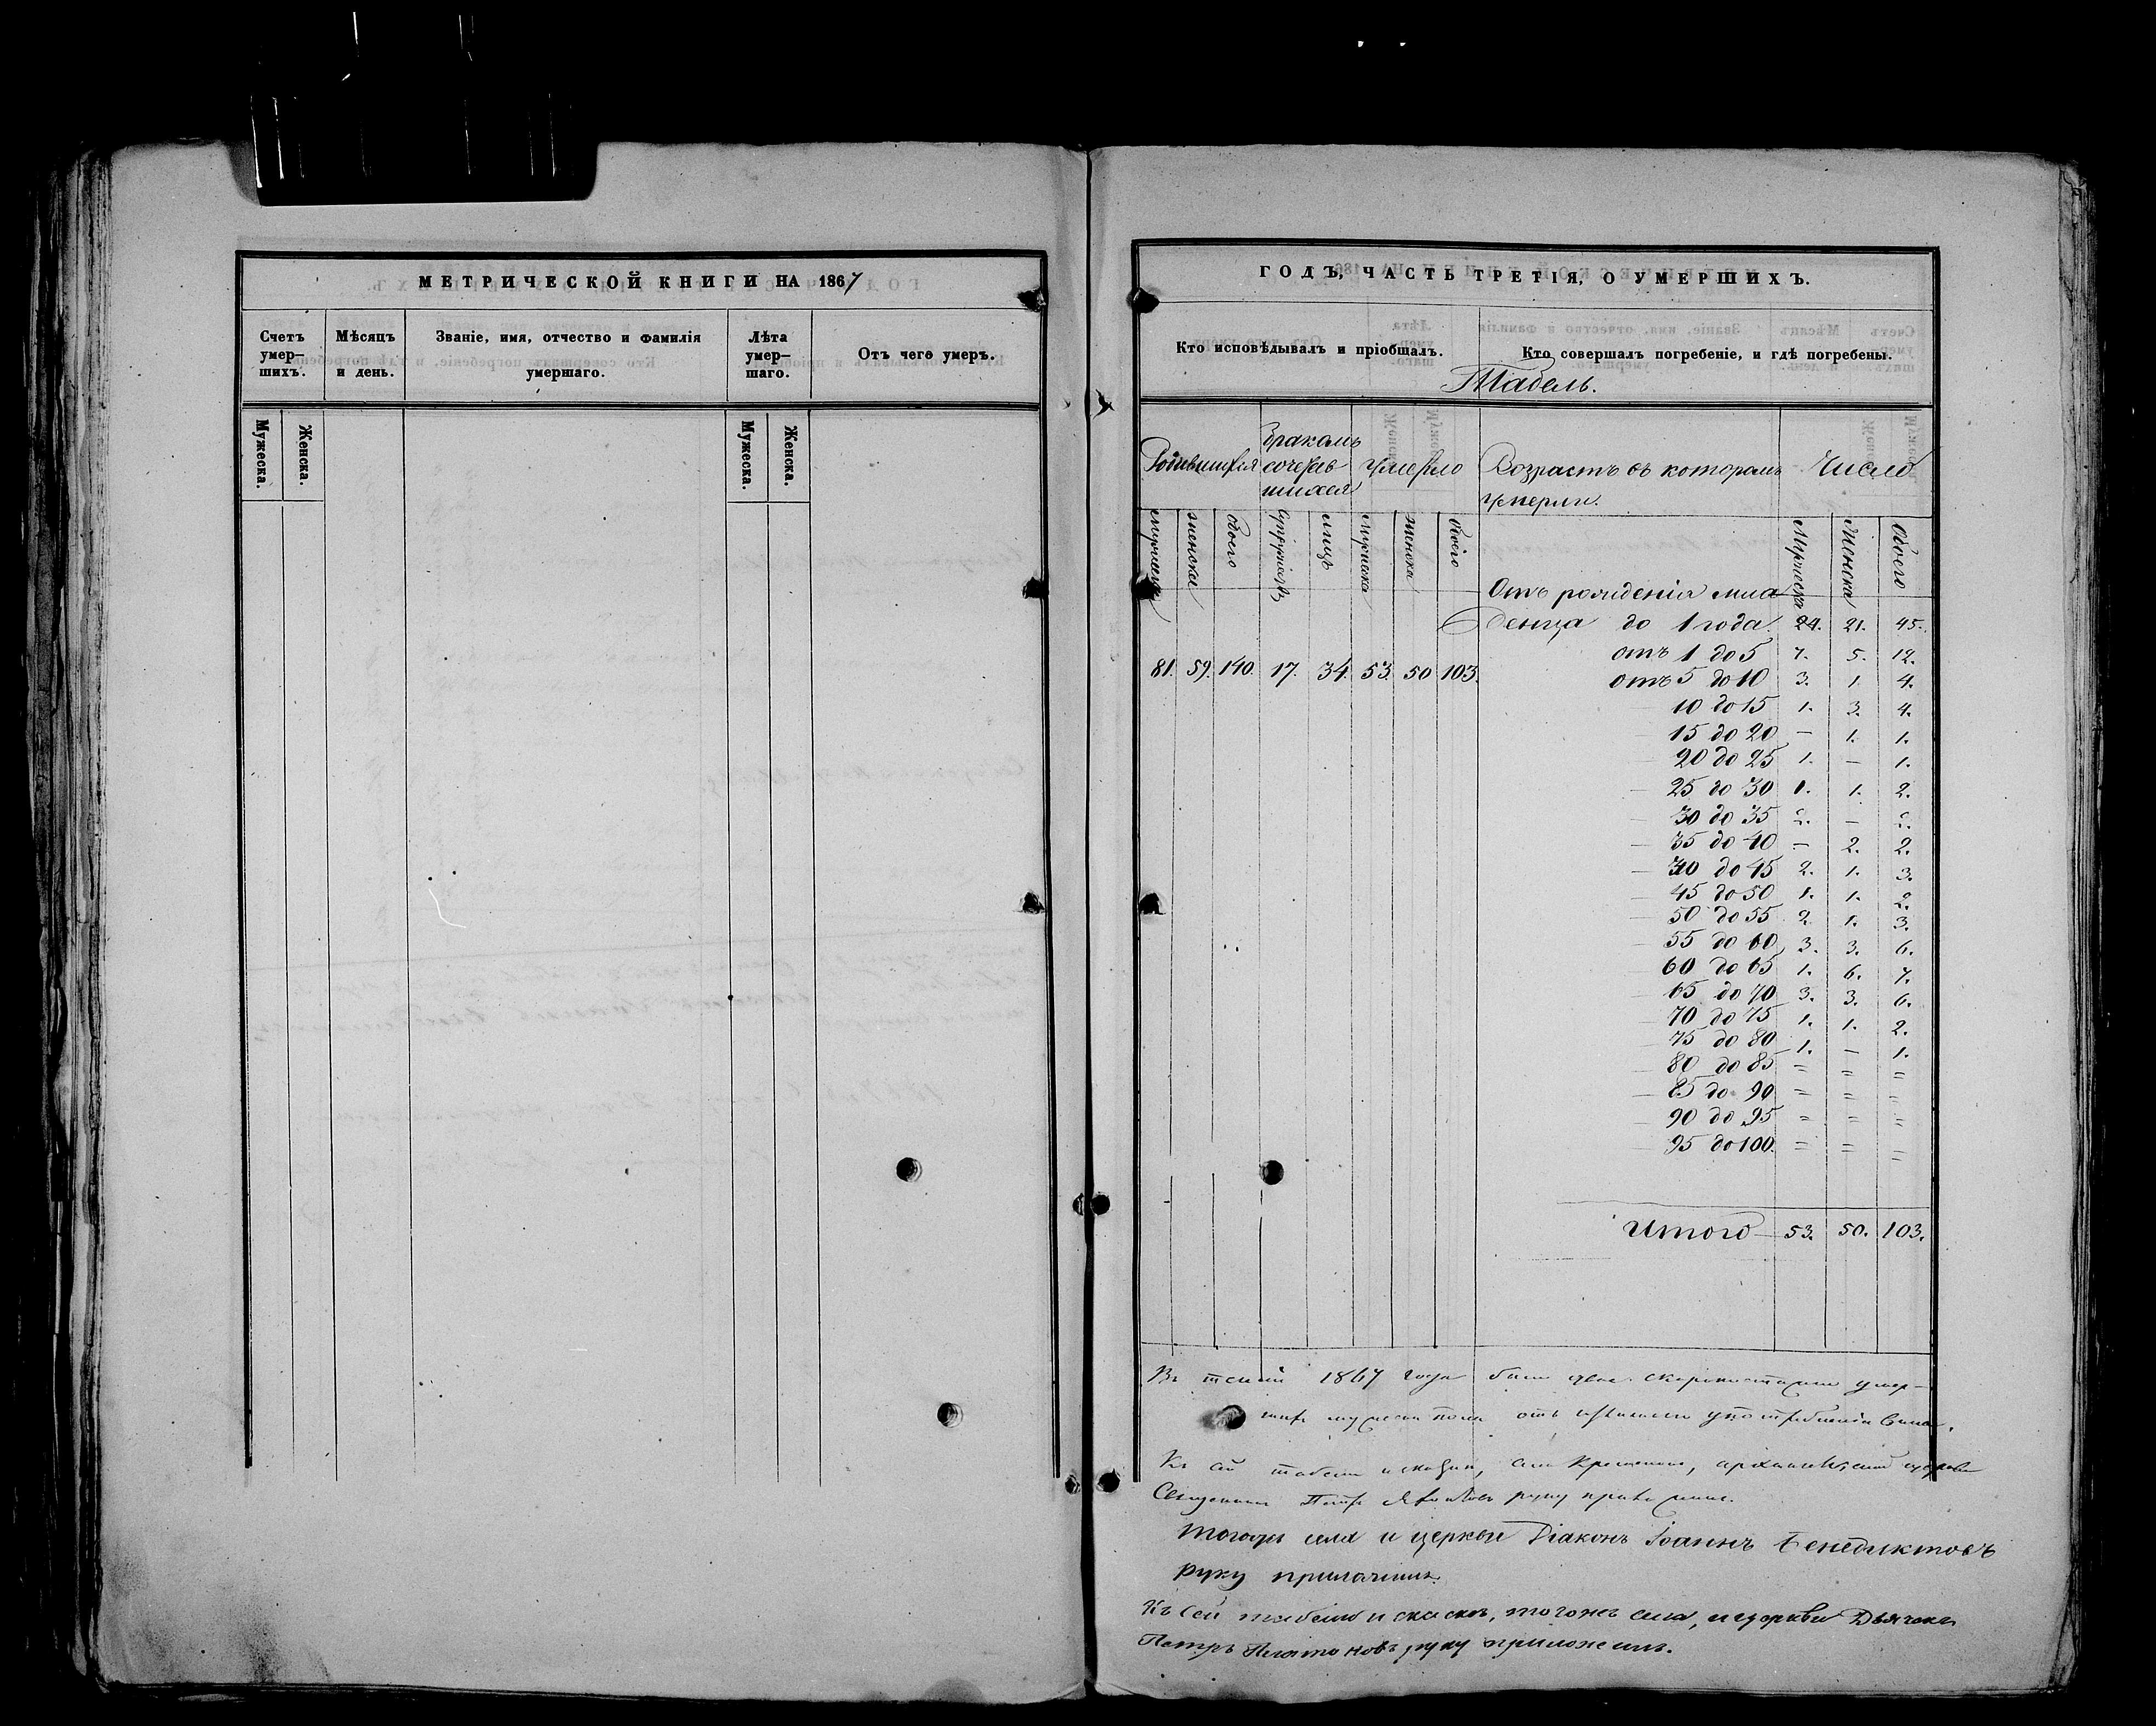 МЕТРИЧЕСКОЙ КНИГИ НА 1867
Счетъ умер-шихъ.
Мѣсяцъ и день.
Званіе, имя, отчество и фамилія умершаго.
Лѣта умер-шаго.
Отъ чего умеръ.
Мужеска.
Женска.
Мужеска.
Женска.
ГОДЪ, ЧАСТЬ ТРЕТІЯ, О УМЕРШИХЪ.
Кто исповѣдывалъ и пріобщалъ.
Кто совершалъ погребеніе, и гдѣ погребены.
Табель.
Родившихся
Бракомъ сочетав шихся
Умерло
Возрастъ въ которомъ
Умерли.
Число
Мужеска
женска
обоего
Супружествъ
лицъ
Мужеска
женска
обоего
Мужеска
Женска
Обоего
Отъ рожденія мла
денца до 1 года 24. 21. 45.
отъ 1 до 5 7. 5. 12.
81. 59. 140. 17. 34. 53. 50 103.
отъ 5 до 10 3. 1. 4.
10 до 15 1. 3. 4.
15 до 20 — 1. 1.
20 до 25 1. — 1.
25 до 30 1. 1. 2.
30 до 35 2. — 2.
35 до 40 — 2. 2.
40 до 45 2. 1. 3.
45 до 50 1. 1. 2.
50 до 55 2 1. 3.
55 до 60 3. 3. 6.
60 до 65 1. 6. 7.
65 до 70 3. 3. 6.
70 до 75 1. 1. 2.
75 до 80 1. — 1.
80 до 85 = = =
85 до 90 = = =
90 до 95 = = =
95 до 100. = = =
Итого 53. 50. 103.
Въ 1867 года скоропостижно умер-
отъ употребленія вина.
Къ сей табели церкви
Священникъ Петръ руку приложилъ.
Тогожъ села и церкви Діаконъ Іоаннъ Бенедиктовъ
руку приложилъ.
Къ сей табели и сказкѣ, тогоже села, и церкви Дьячекъ
Петръ Платоновъ руку приложилъ.